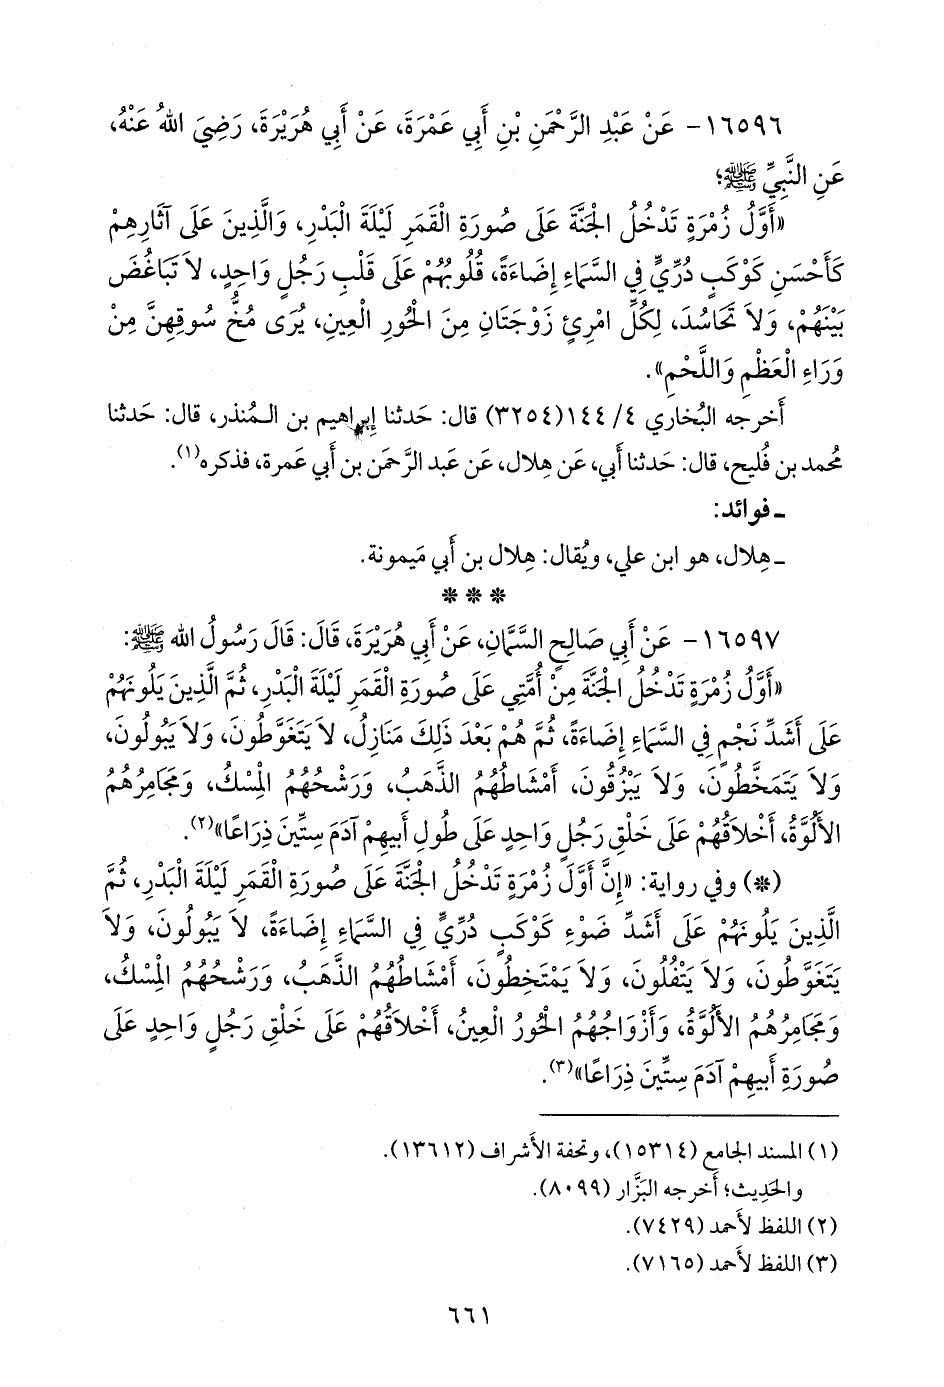 ١٦٥٩٦- عَنْ عَبْدِ الرَّحْمَنِ بْنِ أَبِي عَمْرَةَ، عَنْ أَبِي هُرَيْرَةَ، رَضِيَ اللهُ عَنْهُ،
عَنِ النَّبِيِّ ﷺ؛
«أَوَّلُ زُمْرَةٍ تَدْخُلُ الْجَنَّةَ عَلَى صُورَةِ الْقَمَرِ لَيْلَةَ الْبَدْرِ، وَالَّذِينَ عَلَى آثَارِهِمْ
كَأَحْسَنِ كَوْكَبٍ دُرِّيٍّ فِي السَّمَاءِ إِضَاءَةً، قُلُوبُهُمْ عَلَى قَلْبِ رَجُلٍ وَاحِدٍ، لاَ تَبَاغُضَ
بَيْنَهُمْ، وَلاَ تَحَاسُدَ، لِكُلِّ امْرِئٍ زَوْجَتَانِ مِنَ الْحُورِ الْعِينِ، يُرَى مُخُّ سُوقِهِنَّ مِنْ
وَرَاءِ الْعَظْمِ وَاللَّحْمِ».
أَخرجه البُخاري ٤/ ١٤٤(٣٢٥٤) قال: حَدثنا إِبراهيم بن المُنذر، قال: حَدثنا
مُحمد بن فُليح، قال: حَدثنا أَبي، عَن هِلال، عَن عَبد الرَّحمَن بن أَبي عَمرة، فذكره(١).
ـ فوائد:
ـ هِلال، هو ابن علي، ويُقال: هِلال بن أَبي مَيمونة.
* * *
١٦٥٩٧- عَنْ أَبِي صَالِحٍ السَّمَّانِ، عَنْ أَبِي هُرَيْرَةَ، قَالَ: قَالَ رَسُولُ الله ﷺ:
«أَوَّلُ زُمْرَةٍ تَدْخُلُ الْجَنَّةَ مِنْ أُمَّتِي عَلَى صُورَةِ الْقَمَرِ لَيْلَةَ الْبَدْرِ، ثُمَّ الَّذِينَ يَلُونَهُمْ
عَلَى أَشَدِّ نَجْمٍ فِي السَّمَاءِ إِضَاءَةً، ثُمَّ هُمْ بَعْدَ ذَلِكَ مَنَازِلُ، لاَ يَتَغَوَّطُونَ، وَلاَ يَبُولُونَ،
وَلاَ يَتَمَخَّطُونَ، وَلاَ يَبْزُقُونَ، أَمْشَاطُهُمُ الذَّهَبُ، وَرَشْحُهُمُ الْمِسْكُ، وَمَجَامِرُهُمُ
الأَلُوَّةُ، أَخْلاَقُهُمْ عَلَى خَلْقِ رَجُلٍ وَاحِدٍ عَلَى طُولِ أَبِيهِمْ آدَمَ سِتِّينَ ذِرَاعًا»(٢).
(*) وفي رواية: «إِنَّ أَوَّلَ زُمْرَةٍ تَدْخُلُ الْجَنَّةَ عَلَى صُورَةِ الْقَمَرِ لَيْلَةَ الْبَدْرِ، ثُمَّ
الَّذِينَ يَلُونَهُمْ عَلَى أَشَدِّ ضَوْءِ كَوْكَبٍ دُرِّيٍّ فِي السَّمَاءِ إِضَاءَةً، لاَ يَبُولُونَ، وَلاَ
يَتَغَوَّطُونَ، وَلاَ يَتْفُلُونَ، وَلاَ يَمْتَخِطُونَ، أَمْشَاطُهُمُ الذَّهَبُ، وَرَشْحُهُمُ الْمِسْكُ،
وَمَجَامِرُهُمُ الأَلُوَّةُ، وَأَزْوَاجُهُمُ الْحُورُ الْعِينُ، أَخْلاَقُهُمْ عَلَى خَلْقِ رَجُلٍ وَاحِدٍ عَلَى
صُورَةِ أَبِيهِمْ آدَمَ سِتِّينَ ذِرَاعًا»(٣).
(١) المسند الجامع (١٥٣١٤)، وتحفة الأشراف (١٣٦١٢).
والحَدِيث؛ أَخرجه البَزَّار (٨٠٩٩).
(٢) اللفظ لأَحمد (٧٤٢٩).
(٣) اللفظ لأَحمد (٧١٦٥).
٦٦١